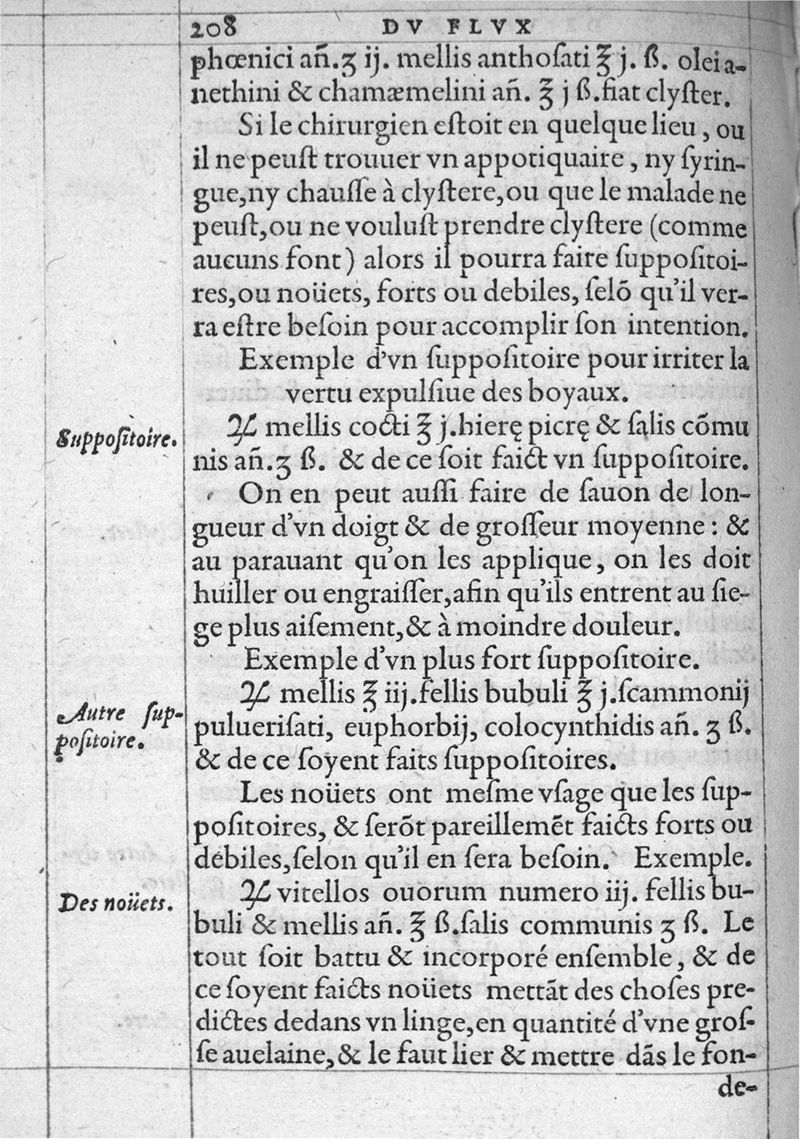 208 DV FLVX
phœnici añ.ʒ ij. mellis anthoſati ℥ j. ß. olei a-
nethini & chamæmelini añ. ℥ j ß.fiat clyſter.
Si le chirurgien eſtoit en quelque lieu, ou
il ne peuſt trouuer vn appotiquaire, ny ſyrin-
gue,ny chauſſe à clyſtere,ou que le malade ne
peuſt,ou ne vouluſt prendre clyſtere (comme
aucuns font) alors il pourra faire ſuppoſitoi-
res,ou noüets, forts ou debiles, ſelõ qu'il ver-
ra eſtre beſoin pour accomplir ſon intention.
Exemple d'vn ſuppoſitoire pour irriter la
vertu expulſiue des boyaux.
Suppoſitoire.
♃ mellis cocti ℥ j.hierę picrę & ſalis cõmu
nis añ.ʒ ß. & de ce ſoit faict vn ſuppoſitoire.
On en peut auſſi faire de ſauon de lon-
gueur d'vn doigt & de groſſeur moyenne : &
au parauant qu'on les applique, on les doit
huiller ou engraiſſer,afin qu'ils entrent au ſie-
ge plus aiſement,& à moindre douleur.
Exemple d'vn plus fort ſuppoſitoire.
Autre ſup-
poſitoire.
♃ mellis ℥ iij.fellis bubuli ℥ j.ſcammonij
puluerіſati, euphorbij, colocynthidis añ. ʒ ß.
& de ce ſoyent faits ſuppoſitoires.
Les noüets ont meſme vſage que les ſup-
poſitoires, & ſerõt pareillemẽt faicts forts ou
debiles,ſelon qu'il en ſera beſoin. Exemple.
Des noüets.
♃ vitellos ouorum numero iij. fellis bu-
buli & mellis añ. ℥ ß.ſalis communis ʒ ß. Le
tout ſoit battu & incorporé enſemble, & de
ce ſoyent faicts noüets mettãt des choſes pre-
dictes dedans vn linge,en quantité d'vne groſ-
ſe auelaine,& le faut lier & mettre dãs le fon-
de-